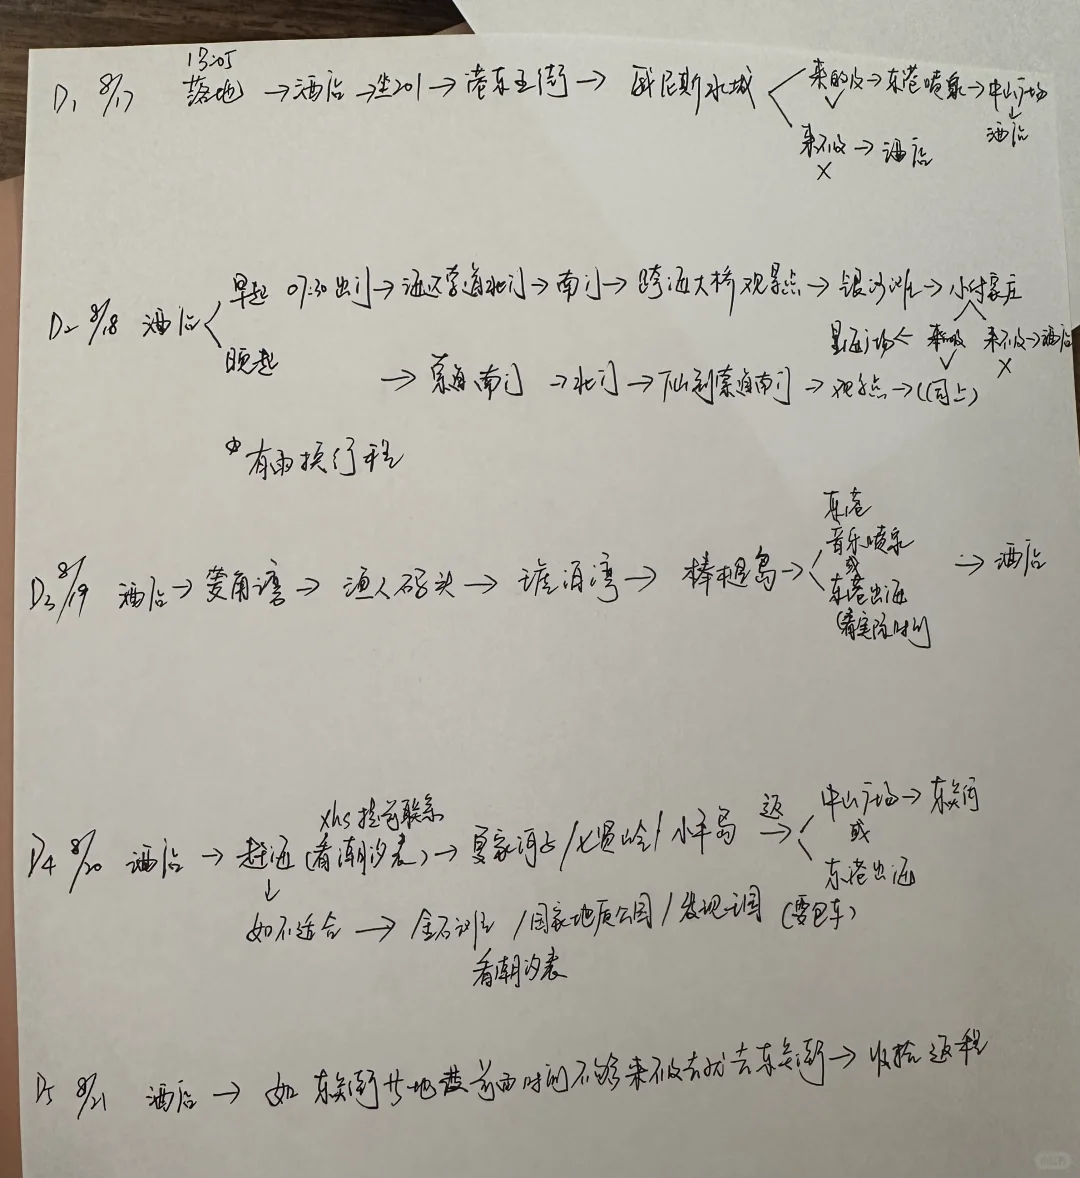 13:05
D1 8/17 落地 → 酒店 → 坐201 → 港东五街 → 威尼斯水城 来的及 → 东港喷泉 → 中山广场
✓ ↓
来不及 → 酒店 酒店
×
早起 07:30出门 → 滨海北门 → 南门 → 跨海大桥观景点 → 银沙滩 → 小付家庄
D2 8/18 酒店
晚起 星海广场 ← 来的及 来不及 → 酒店
✓ ×
→ 南门 → 北门 → 下山到南门 → 观景点 → (同上)
有雨换行程
东港
音乐喷泉
或
D3 8/19 酒店 → 菱角湾 → 渔人码头 → 琥珀湾 → 棒棰岛 → 东港出海 → 酒店
(看实际时间)
xhs提前联系 返 中山广场 → 东关街
D4 8/20 酒店 → 赶海 (看潮汐表) → 夏家河子/七贤岭/小平岛 → 或
↓ 东港出海
如不适合 → 金石滩/国家地质公园/发现王国 (要包车)
看潮汐表
D5 8/21 酒店 → 如东关街等地前面时间不够来不及去就去东关街 → 收拾返程